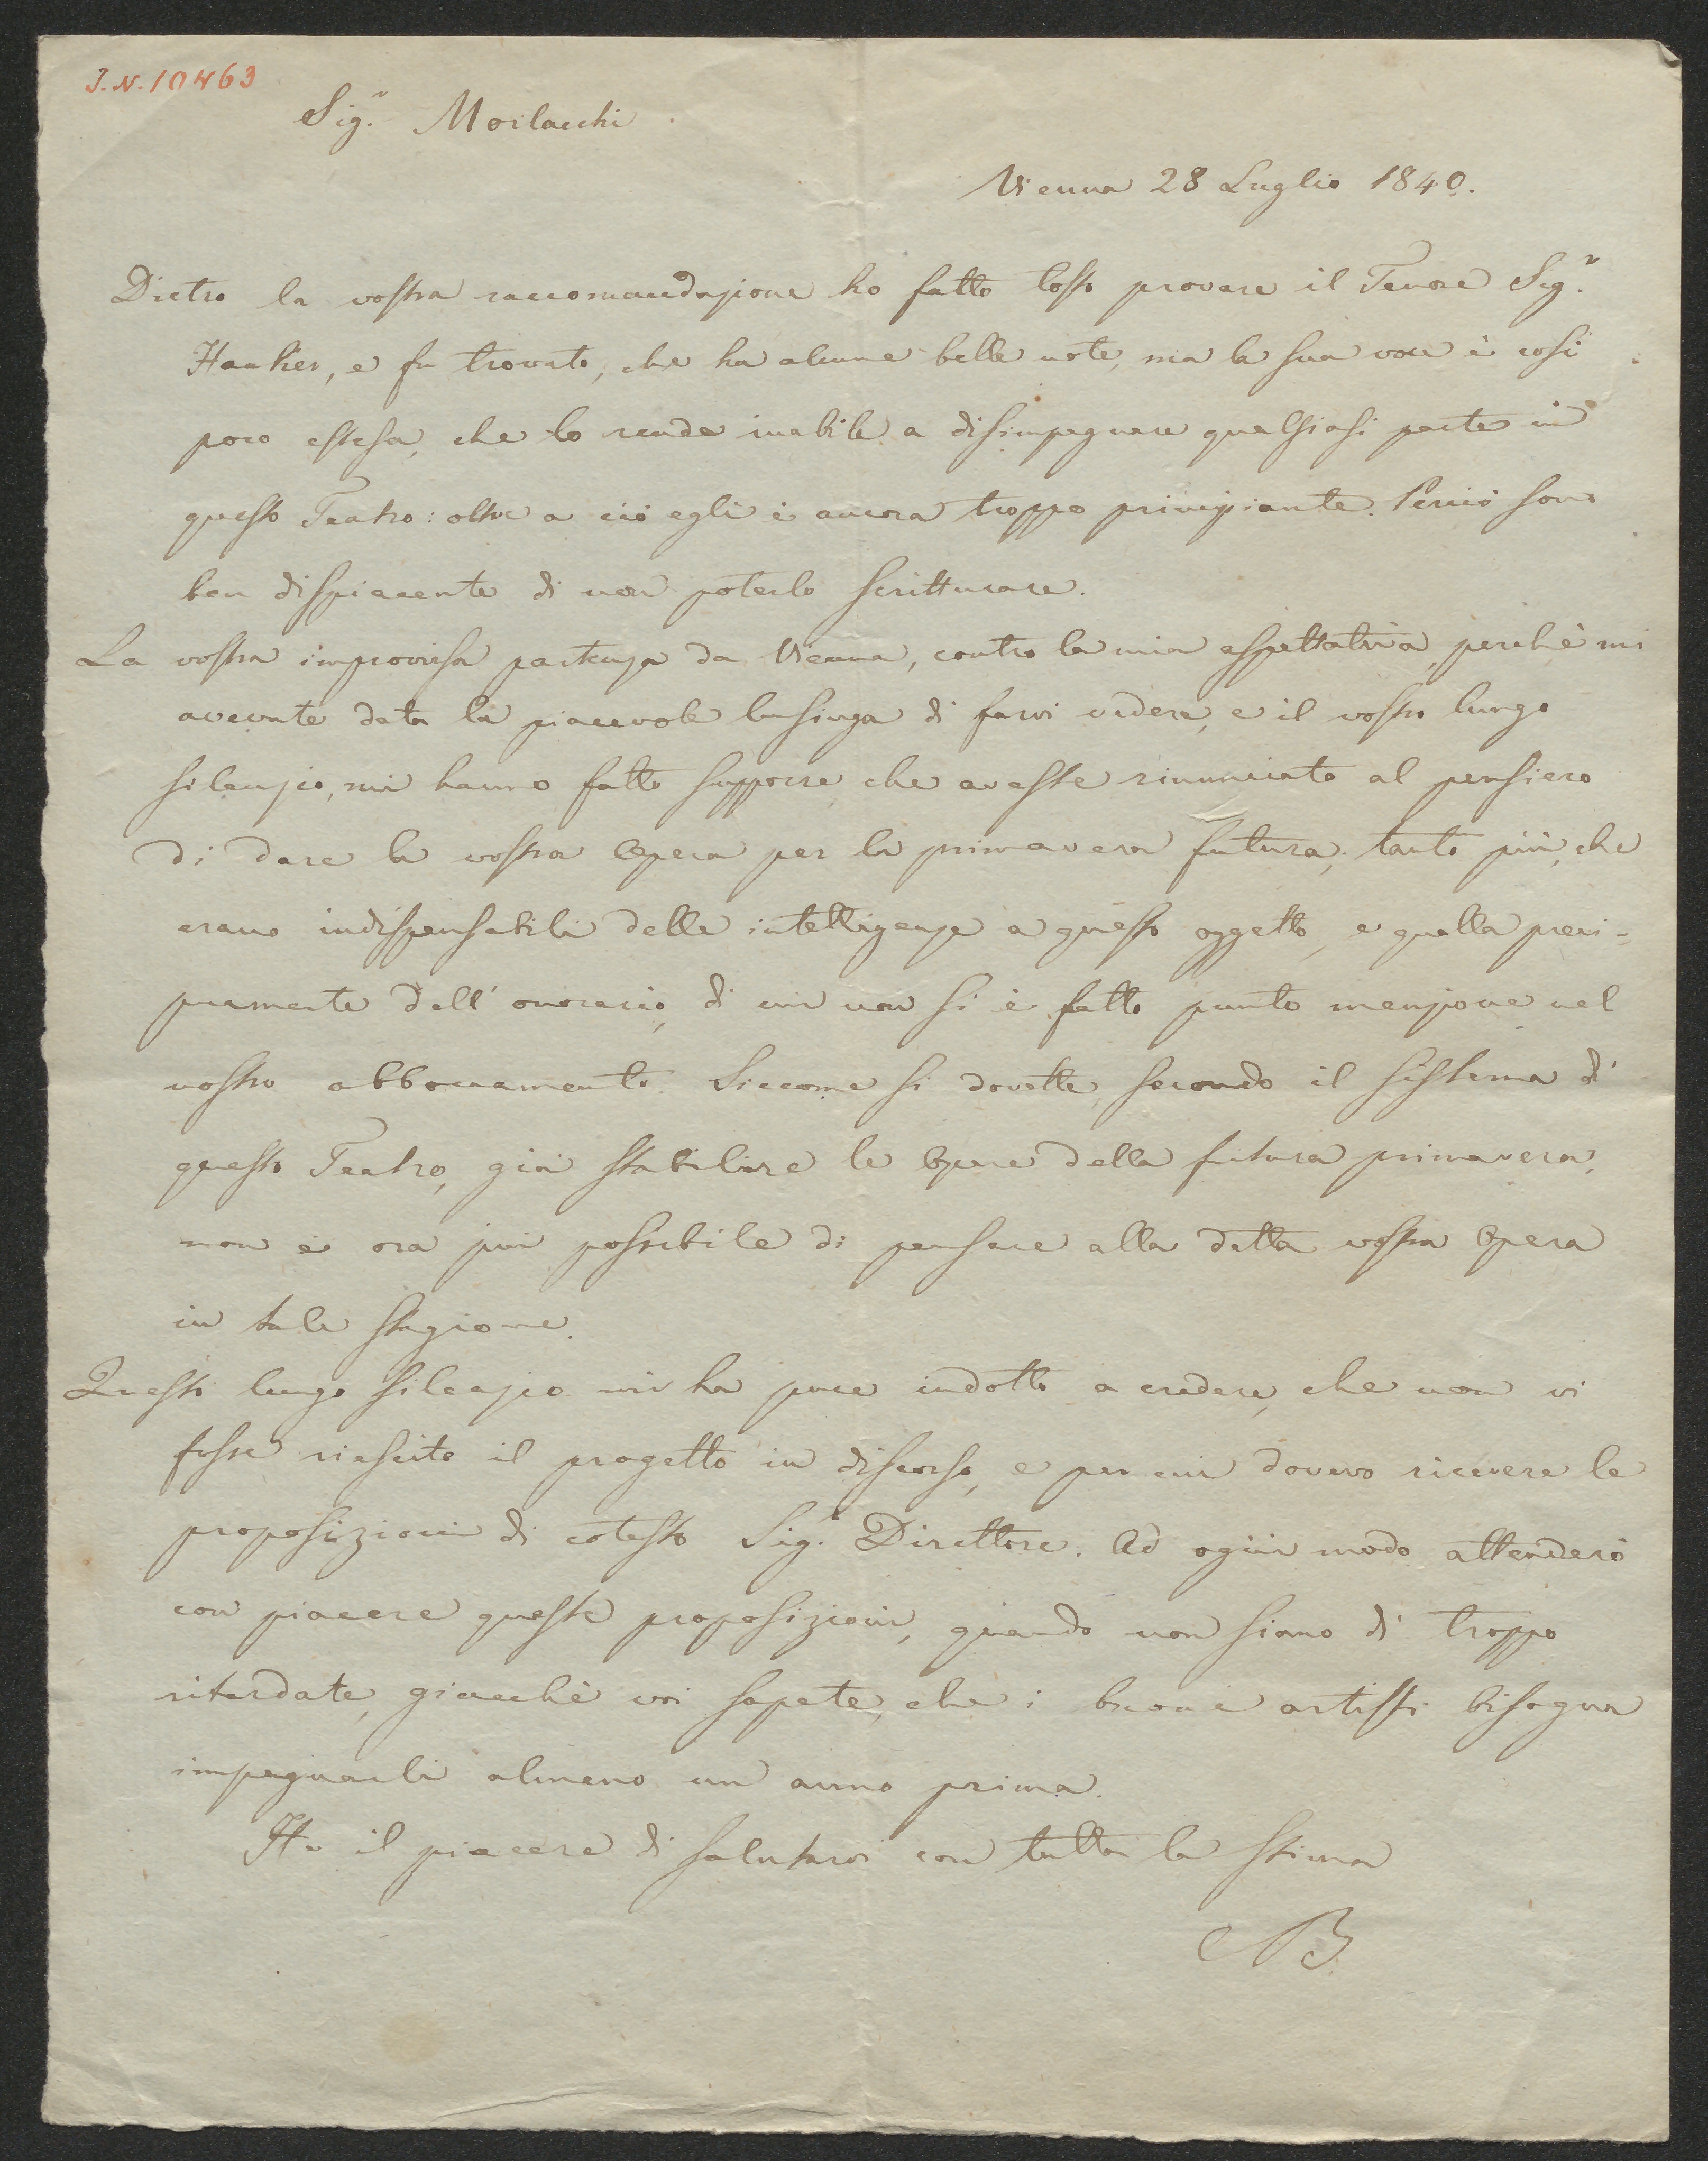 J. N. 10463
Sigr. Morlacchi
Vienna 28 Luglio 1840.
Dietro la vostra raccomandazione ho fatto tosto provare il Tenore Sigr.
e fu trovato, che ha alcune belle note, ma la sua voce è così
poco estesa, che lo rende inabile a disimpegnare qualsiasi parte in
questo Teatro: oltre a ciò egli è ancora troppo principiante. Perciò sono
ben dispiacente di non poterlo scritturare.
La vostra improvvisa partenza da Vienna, contro la mia aspettativa, perchè mi
avevate data la piacevole lusinga di farvi vedere, e il vostro lungo
silenzio, mi hanno fatto supporre che aveste rinunciato al pensiero
di dare la vostra Opera per la primavera futura, tanto più, che
erano indispensabili delle intelligenze a questo oggetto, e quella preci-
puamente dell' onorario, di cui non si è fatto punto menzione nel
nostro abboccamento. Siccome si dovette, secondo il sistema di
questo Teatro, già stabilire le Opere della futura primavera,
non è ora più possibile di pensare alla detta vostra Opera
in tale stagione.
Questo lungo silenzio mi ha pure indotto a credere, che non vi
fosse riescito il progetto in discorso, e per cui dovevo ricevere le
proposizioni di cotesto Sigr. Direttore. Ad ogni modo attenderò
con piacere queste proposizioni, quando non siano di troppo
ritardate, giacchè voi sapete, che i buoni artisti bisogna
impegnarli almeno un anno prima.
Ho il piacere di salutarvi con tutta la stima